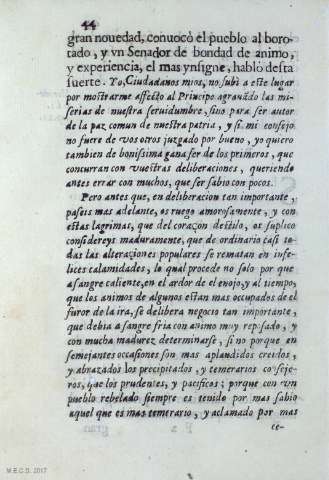 44
gran nouedad, conuocò el pueblo al boro-
tado, y vn Senador de bondad de animo,
y experiencia, el mas ynsigne, hablò desta
suerte. Yo, Ciudadanos mios, no subì a este lugar
por mostrarme affecto al Principe agrauãdo las mi-
serias de nuestra seruidumbre, sino para ser autor
de la paz comun de nuestra patria, y si mi consejo
no fuere de vos otros juzgado por bueno, yo quiero
tambien de bonissima gana ser de los primeros, que
concurran con vuestras deliberaciones, queriendo
antes errar con muchos, que ser sabio con pocos.
Pero antes que, en deliberacion tan importante,
paseis mas adelante, os ruego amorosamente, y con
estas lagrimas, que del coraçon destilo, os suplico
considereys maduramente, que de ordinario casi to-
das las alteraciones populares se rematan en infe-
lices calamidades, lo qual procede no solo por que
a sangre caliente, en el ardor de el enojo, y al tiempo,
que los animos de algunos estan mas ocupados de el
furor de la ira, se delibera negocio tan importante,
que debia a sangre fria con animo muy reposado, y
con mucha madurez determinarse, si no porque en
semejantes occasiones son mas aplaudidos creidos,
y abrazados los precipitados, y temerarios conseje-
ros, que los prudentes, y pacificos; porque con vn
pueblo rebelado siempre es tenido por mas sabio
aquel que es mas temerario, y aclamado por mas
ce-
M.E.C.D. 2017